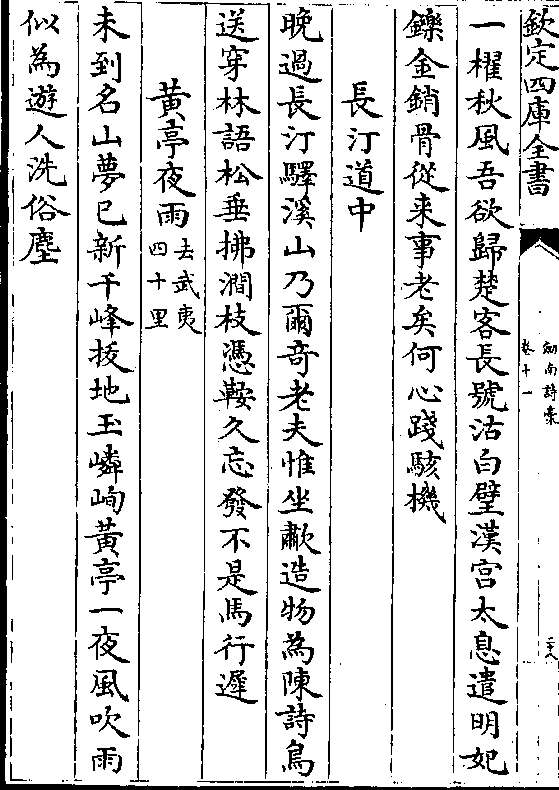 欽定四庫全書
劒南詩稾
卷十一
二十八
一櫂秋風吾欲歸楚客長號沽白璧漢宫太息遣明妃
鑠金銷骨從来事老矣何心踐駭機
長汀道中
晚過長汀驛溪山乃爾竒老夫惟坐歗造物為陳詩鳥
送穿林語松垂拂澗枝憑鞍久忘發不是馬行遲
黄亭夜雨去武夷
四十里
未到名山夢已新千峰拔地玉嶙峋黄亭一夜風吹雨
似為遊人洗俗塵